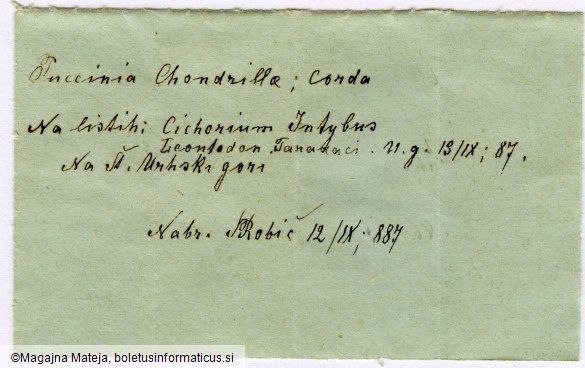 Puccinia Chondrillæ; Corda
Na listih; Cichorium Intybus
Leontodon Taraxaci. U. g. 13/IX; 87.
Na Š. Urhski gori
Nabr. SRobič 12/IX; 887
©Magajna Mateja, boletusinformaticus.si